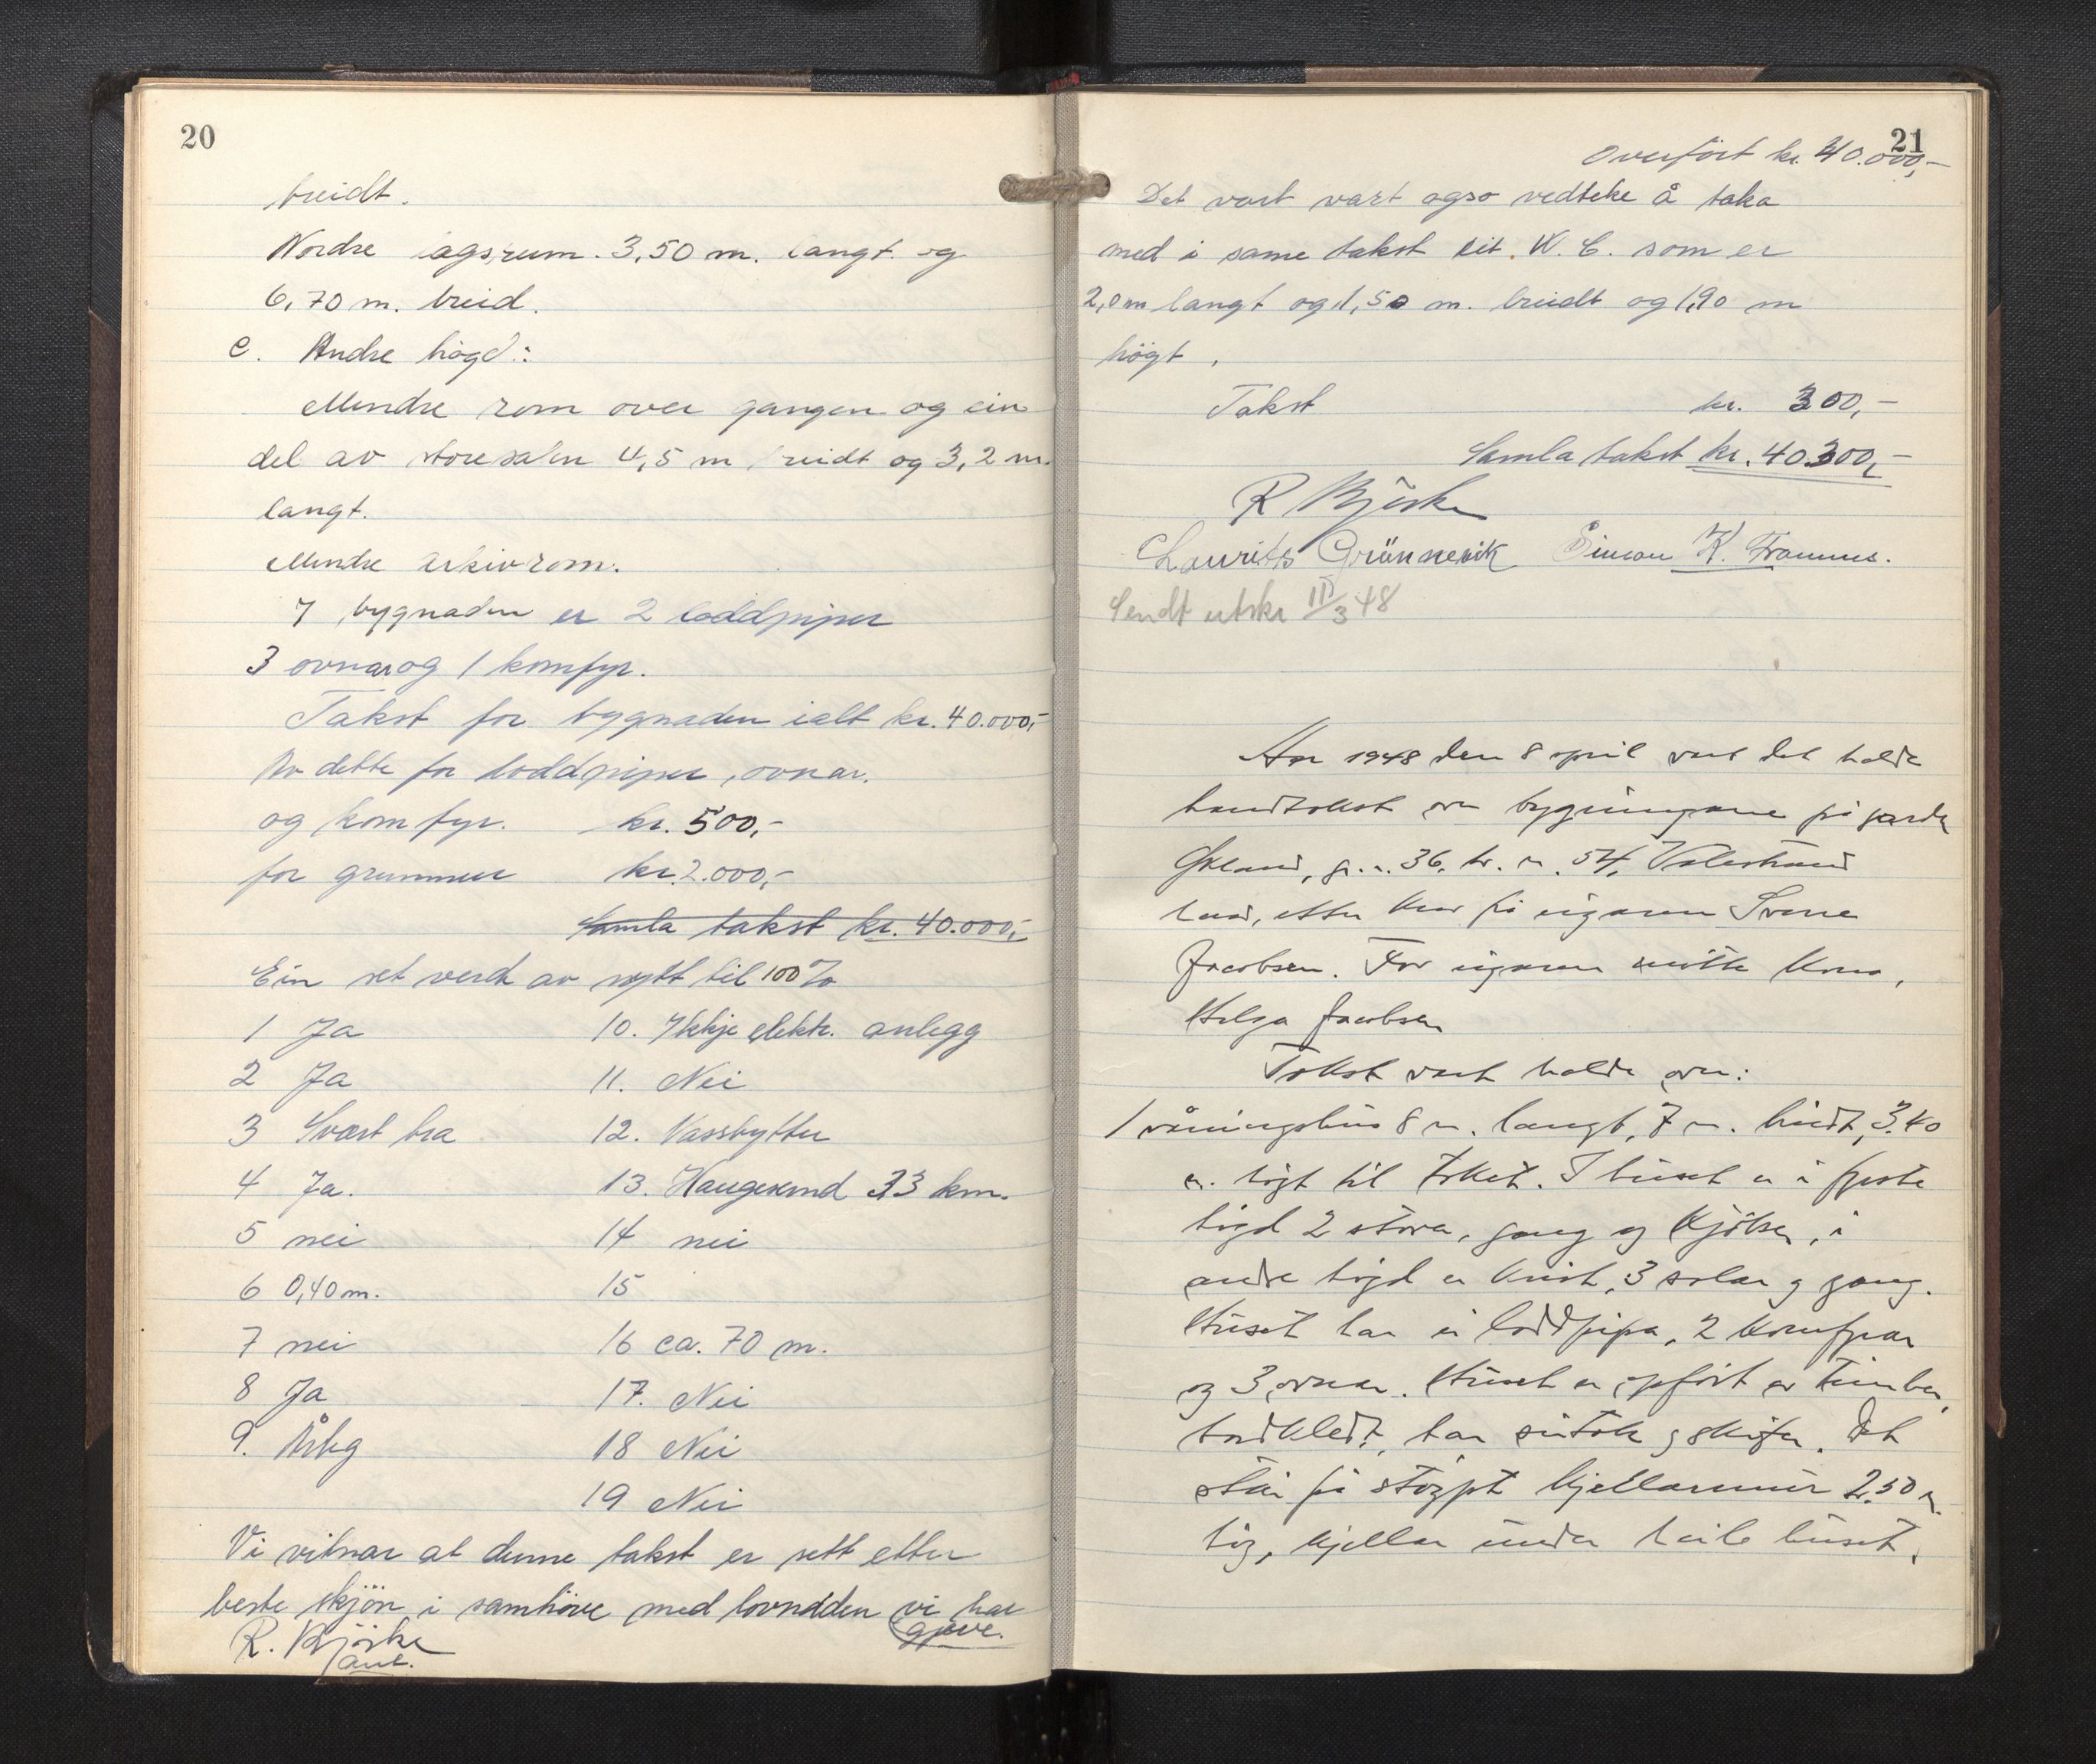 20
breidt.
Nordre lagsrum. 3,50 m. langt og
6,70 m. breid.
c. Andre högd:
Mindre rom over gangen og ein
del av storesalen 4,5 m breidt og 3,2 m.
langt.
Mindre arkivrom.
I bygnaden er 2 loddpiper
3 ovnar og 1 komfyr.
Takst for bygnaden ialt kr. 40.000,-
Av dette for loddpiper, ovnar.
og komfyr. kr. 500,-
for grunnmur kr. 2.000,-
Samla takst kr. 40.000,-
Ein set verdt av nytt til 100%
1 Ja
2 Ja
3 Svært bra
4 Ja.
5 nei
6 0,40 m.
7 nei
8 Ja
9. Årleg
10. Ikkje elektr. anlegg
11. Nei
12. Vassbytter
13. Haugesund 33 km.
14 nei
15
16 ca. 70 m.
17. Nei
18 Nei
19 Nei
Vi vitnar at denne takst er sett etter
beste skjön i samhöve med lovnaden vi har
gjeve.
R. Bjørke
21
Overfört kr. 40.000,-
Det vart vart ogso vedteke å taka
med i same takst eit W. C. som er
2,0 m langt og 1,50 m. breidt og 1,90 m
högt.
Takst kr. 300,-
Samla takst kr. 40.300,-
R Bjørke
Laurits Grönnevik Simon K. Framnes.
Sendt utskr 11/3 48
År 1948 den 8 april vart det halde
branntakst over bygningane på garden
Økland, gr. nr. 36, br. nr. 54, Valestrand
herad, etter krav frå eigaren Sverre
Jacobsen. For eigaren møtte kona,
Helga Jacobsen
Takst vart halde over:
1 våningshus 8 m. langt, 7 m. breidt, 3.40
m. högt til taket. I huset er i fyrste
högd 2 stover, gang og kjøken, i
andre högd er kvist, 3 solar og gang.
Huset har ei loddpipa, 2 komfyrar
og 3 ovnar. Huset er oppfört av timber,
bordkledt, har sutak og skifer. Det
står på støypt kjellarmur 2.50 m.
høg, kjellar under heile huset.